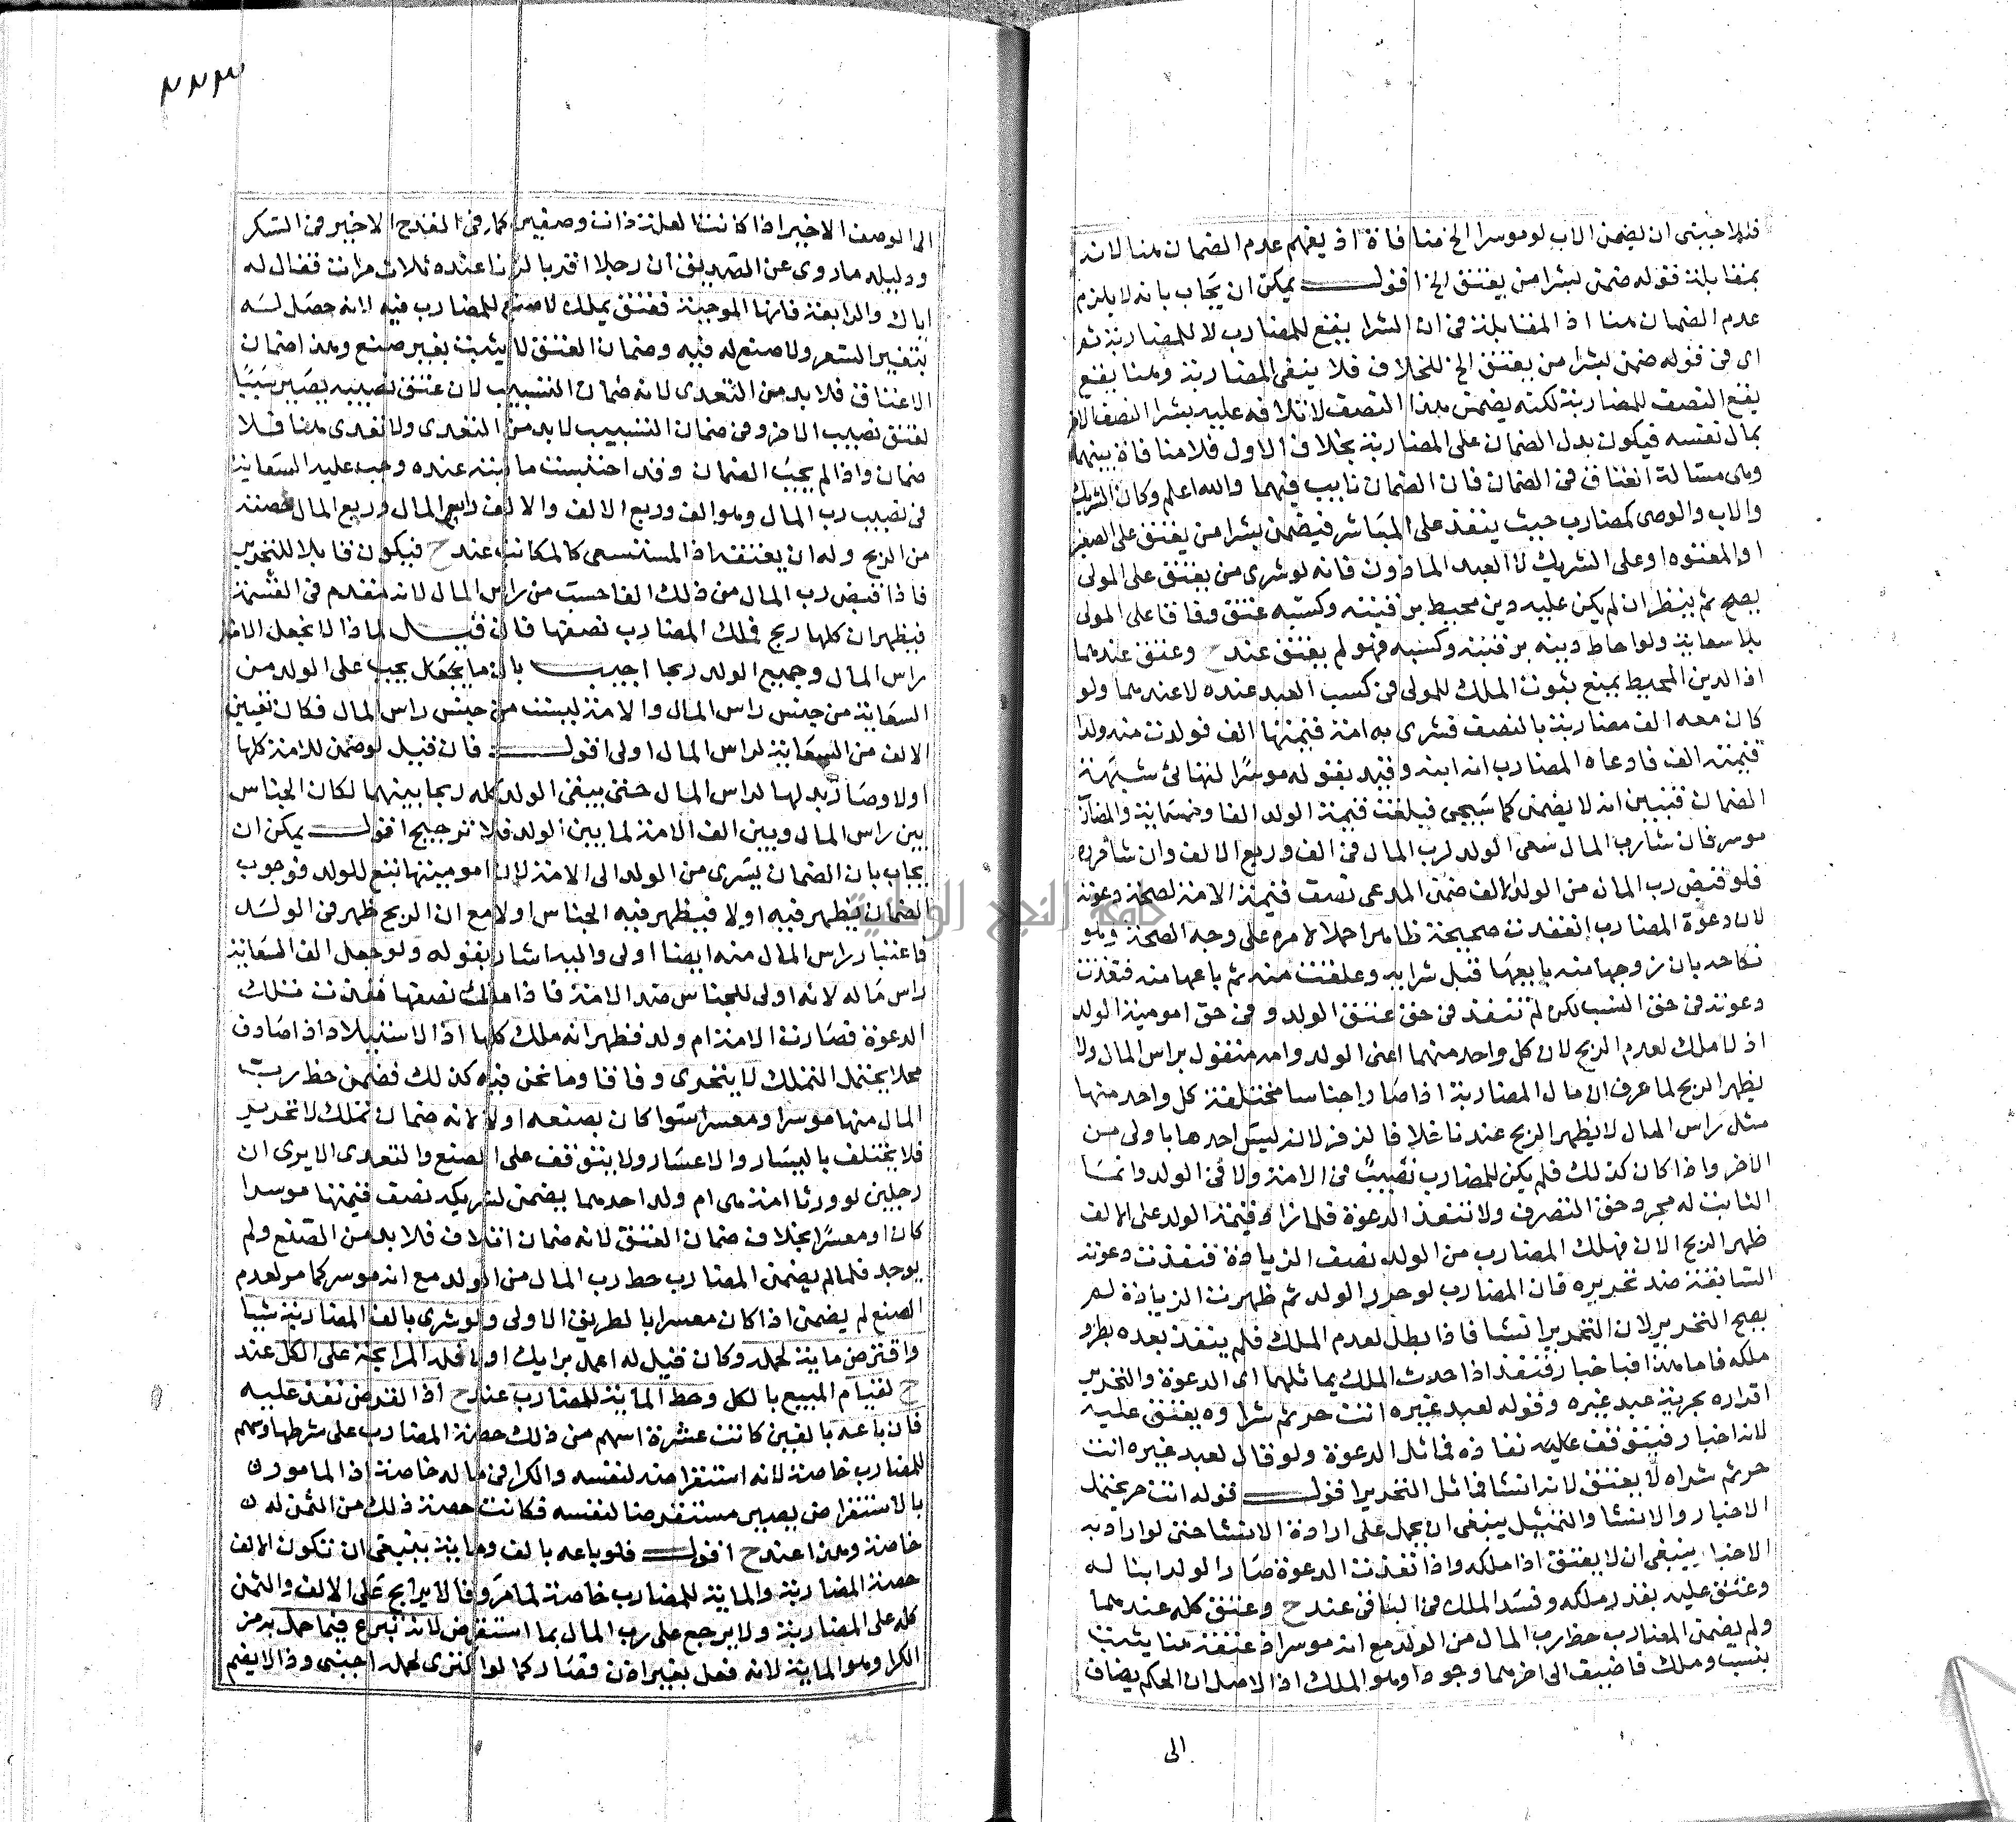 فللاجنبى ان يضمن الاب لو موسرا الخ منافاة اذ يفهم عدم الضمان هنا لانه
بمقابلة قوله ضمن لشرا من يعتق الخ اقول يمكن ان يجاب بانه لا يلزم
عدم الضمان هنا اذ المقابلة فى ان الشرا يقع للمضارب لا للمضاربة ثم
اى فى قوله ضمن لشرا من يعتق الخ للخلاف فلا ينفى المضاربة وهنا يقع
يقع النصف للمضاربة لكنه يضمن هذا النصف لاتلافه عليه بشرا النصف الاخر
بمال نفسه فيكون بدل الضمان على المضاربة بخلاف الاول فلا منافاة بينهما
وهى مسالة اتفاق فى الضمان فان الضمان ثابت فيهما والله اعلم وكان الشريك
والاب والوصى كمضارب حيث ينفذ على المباشر فيضمن بشرا من يعتق على الصغير
او المعتوه او على الشريك لا العبد الماذون فانه لو شرى من يعتق على المولى
يصح ثم ينظر ان لم يكن عليه دين محيط برقبته وكسبه عتق وفاقا على المولى
بلا سعاية ولو احاط دينه برقبته وكسبه فهو لم يعتق عند ح وعتق عندهما
اذ الدين المحيط يمنع ثبوت الملك للمولى فى كسب العبد عنده لا عندهما ولو
كان معه الف مضاربة بالنصف فشرى به امة قيمتها الف فولدت منه ولدا
قيمته الف فادعاه المضارب انه ابنه وقيد بقوله موسرا لنفائ شبهة
الضمان فتبين انه لا يضمن كما سيجى فبلغت قيمة الولد الفا وخمسماية والمضارب
موسر فان شا رب المال سعى الولد لرب المال فى الف وربع الالف وان شا حرره
فلو قبض رب المال من الولد الالف ضمن المدعى نصف قيمة الامة لصحة دعوته
لان دعوة المضارب انعقدت صحيحة ظاهرا حملا لامره على وجه الصحة وهو
نكاحه بان زوجها منه بايعها قبل شرايه وعلقت منه ثم باعها منه فنفذت
دعوته فى حق النسب لكن لم تنفذ فى حق عتق الولد وفى حق امومية الولد
اذ لا ملك لعدم الربح لان كل واحد منهما اعنى الولد وامه مشغول براس المال ولا
يظهر الربح لما عرف ان مال المضاربة اذا صار اجناسا مختلفة كل واحد منها
مثل راس المال لا يظهر الربح عندنا خلافا لزفر لانه ليس احدها باولى من
الاخر واذا كان كذلك فلم يكن للمضارب نصيب فى الامة ولا فى الولد وانما
الثابت له مجرد حق التصرف ولا تنفذ الدعوة فلما زاد قيمة الولد على الالف
ظهر الربح الان فملك المضارب من الولد نصف الزيادة فنفذت دعوته
السابقة ضد تحريره فان المضارب لو حرر الولد ثم ظهرت الزيادة لم
يصح التحرير لان التحرير انشا فاذا بطل لعدم الملك فلم ينفذ بعده بطرو
ملكه فاما هذا فباخبار فتنفذ اذا حدث الملك يماثلهما اى الدعوة والتحرير
اقراره بحرية عبد غيره وقوله لعبد غيره انت حر ثم شراه يعتق عليه
لانه اخبار فيتوقف عليه نفاذه فماثل الدعوة ولو قال لعبد غيره انت
حر ثم شراه لا يعتق لانه انشا فماثل التحرير اقول قوله انت حر يحتمل
الاخبار والانشا والتمثيل ينبغى ان يحمل على ارادة الانشا حتى لو اراد به
الاخبار ينبغى ان لا يعتق اذا ملكه واذا نفذت الدعوة صار الولد ابنا له
وعتق عليه بقدر ملكه وفسد الملك فى الباقى عند ح وعتق كله عندهما
ولم يضمن المضارب حظ رب المال من الولد مع انه موسر اذ عتقه هنا يثبت
بنسب وملك فاضيف الى اخرهما وجودا وهو الملك اذ الاصل ان الحكم يضاف
الى
٣٣٣
الى الوصف الاخير اذا كانت العلة ذات وصفين كما فى القدح الاخير فى السكر
ودليله ما روى عن الصديق ان رجلا اقر بالزنا عنده ثلاث مرات فقال له
اياك والرابعة فانها الموجبة فعتق بملك لا صنع للمضارب فيه لانه حصل له
بتغير السعر ولا صنع له فيه وضمان العتق لا يثبت بغير صنع وهذا ضمان
الاعتاق فلا بد من التعدى لانه ضمان التسبيب لان عتق نصيبه يصير سببا
لعتق نصيب الاخر وفى ضمان التسبيب لا بد من التعدى ولا تعدى هنا فلا
ضمان واذا لم يجب الضمان وقد احتبست ماليته عنده وجب عليه السعاية
فى نصيب رب المال وهو الف وربع الالف والالف راس المال وربع المال حصته
من الربح وله ان يعتقه اذ المستسعى كالمكاتب عند ح فيكون قابلا للتحرير
فاذا قبض رب المال من ذلك الفا حسب من راس المال لانه مقدم فى القسمة
فيظهر ان كلها ربح فملك المضارب نصفها فان قيل لماذا لا يجعل الامة
راس المال وجميع الولد ربحا اجيب بان ما يجعل يجب على الولد من
السعاية من جنس راس المال والامة ليست من جنس راس المال فكان تعيين
الالف من السعاية لراس المال اولى اقول فان قيل لو ضمن للامة كلها
اولا وصار بدلها لراس المال حتى يبقى الولد كله ربحا بينهما لكان الجناس
بين راس المال وبين الف الامة لما بين الولد فلا ترجيح اقول يمكن ان
يجاب بان الضمان يسرى من الولد الى الامة لان اموميتها تبع للولد فوجوب
الضمان يظهر فيه اولا فيظهر فيه الجناس اولا مع ان الربح ظهر فى الولد
فاعتبار راس المال منه ايضا اولى واليه اشار بقوله ولو جعل الف السعاية
راس ماله لانه اولى للجناس ضد الامة فاذا ملك نصفها نفذت تلك
الدعوة فصارت الامة ام ولد فظهر انه ملك كلها اذ الاستيلاد اذا صادف
محلا يحتمل التملك لا يتجزى وفاقا وما نحن فيه كذلك فضمن حظ رب
المال منها موسرا ومعسرا سوا كان بصنعه اولا لانه ضمان تملك لا تحرير
فلا يختلف باليسار والاعسار ولا يتوقف على الصنع والتعدى الا يرى ان
رجلين لو ورثا امة هى ام ولد احدهما يضمن لشريكه نصف قيمتها موسرا
كان او معسرا بخلاف ضمان العتق لانه ضمان اتلاف فلا بد من الصنع ولم
يوجد فلما لم يضمن المضارب حظ رب المال من الولد مع انه موسر كما مر لعدم
الصنع لم يضمن اذا كان معسرا بالطريق الاولى ولو شرى بالف المضاربة شيا
واقترض ماية لحمله وكان قيل له اعمل برايك اولا فله المرابحة على الكل عند
ح لقيام المبيع بالكل وحط الماية للمضارب عند ح اذ القرض نفذ عليه
فان باعه بالفين كانت عشرة اسهم من ذلك حصة المضارب على شرطها وسهم
للمضارب خاصة لانه استقراضه لنفسه والكرا فى ماله خاصة اذ المامور
بالاستقراض يصير مستقرضا لنفسه فكانت حصة ذلك من الثمن له
خاصة وهذا عند ح اقول فلو باعه بالف وماية ينبغى ان تكون الالف
حصة المضاربة والماية للمضارب خاصة لما مر وقالا يرابح على الالف والثمن
كله على المضاربة ولا يرجع على رب المال بما استقرض لانه تبرع فيما حمله به من
الكرا وهو الماية لانه فعل بغير اذن فصار كما لو اكترى لحمله اجنبى وذا لا يضم
جامعة النجاح الوطنية